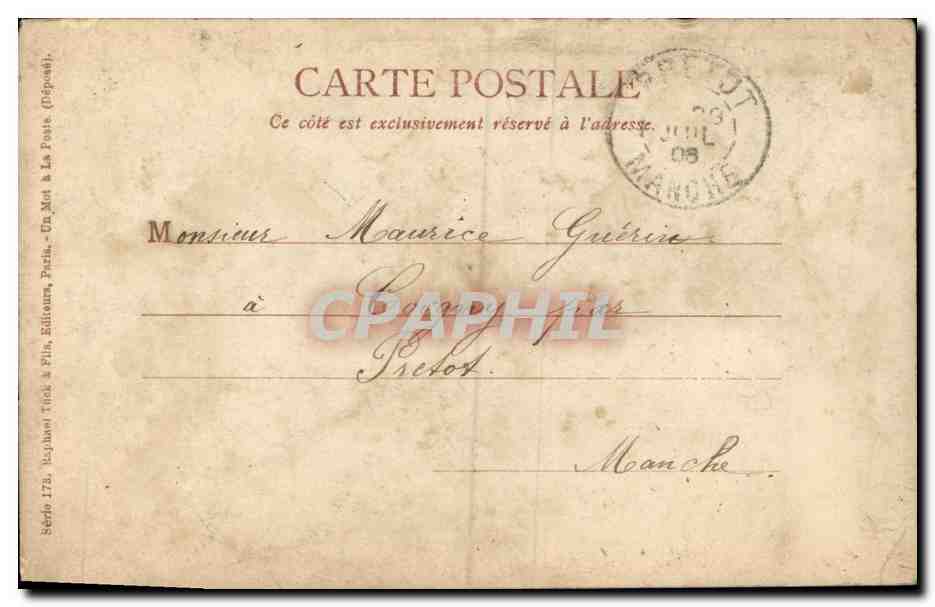 CARTE POSTALE
Ce côté est exclusivement réservé à l'adresse.
PRETOT
29
JUIL
08
MANCHE
Monsieur Maurice Guérin
à Coigny par
Prétot.
Manche
CPAPHIL
Série 173. Raphael Tuck & Fils, Editeurs, Paris. - Un Mot à La Poste. (Déposé).